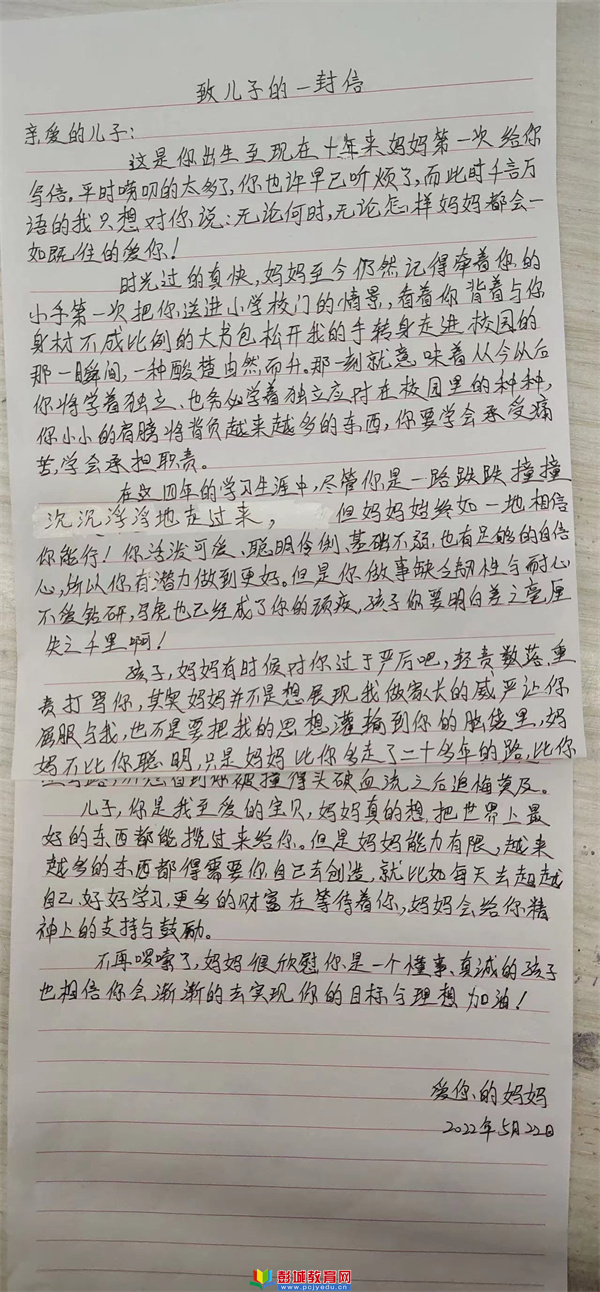 致儿子的一封信
亲爱的儿子:
这是你出生至现在十年来妈妈第一次给你
写信。平时唠叨的太多了,你也许早已听烦了,而此时千言万
语的我只想对你说:无论何时,无论怎样妈妈都会一
如既往的爱你!
时光过的真快,妈妈至今仍然记得牵着你的
小手第一次把你送进小学校门的情景,看着你背着与你
身材不成比例的大书包松开我的手转身走进校园的
那一瞬间,一种酸楚由然而升。那一刻就意味着从今从后
你将学着独立、也务必学着独立应对在校园里的种种,
你小小的肩膀将背负越来越多的东西,你要学会承受痛
苦,学会承担职责。
在这四年的学习生涯中,尽管你是一路跌跌撞撞
沉沉浮浮地走过来,但妈妈始终如一地相信
你能行!你活泼可爱、聪明伶俐、基础不弱、也有足够的自信
心,所以你有潜力做到更好。但是你做事缺乏韧性与耐心
不爱钻研,马虎也已经成了你的顽疾,孩子你要明白差之毫厘
失之千里啊!
孩子,妈妈有时候对你过于严后吧,轻责数落,重
责打骂你,其实妈妈并不是想展现我做家长的威严让你
屈服与我,也不是要把我的思想灌输到你的脑袋里,妈
妈不比你聪明,只是妈妈比你多走了二十多年的路,比你
看到你被撞得头破血流之后追悔莫及。
儿子,你是我至爱的宝贝,妈妈真的想把世界上最
好的东西都能揽过来给你。但是妈妈能力有限,越来
越多的东西都得需要你自己去创造,就比如每天去超越
自己、好好学习,更多的财富在等待着你,妈妈会给你精
神上的支持与鼓励。
不再啰嗦了,妈妈很欣慰你是一个懂事、真诚的孩子
也相信你会渐渐的去实现你的目标与理想加油!
爱你的妈妈
2022年5月22日
彭城教育网
www.pcjyedu.cn